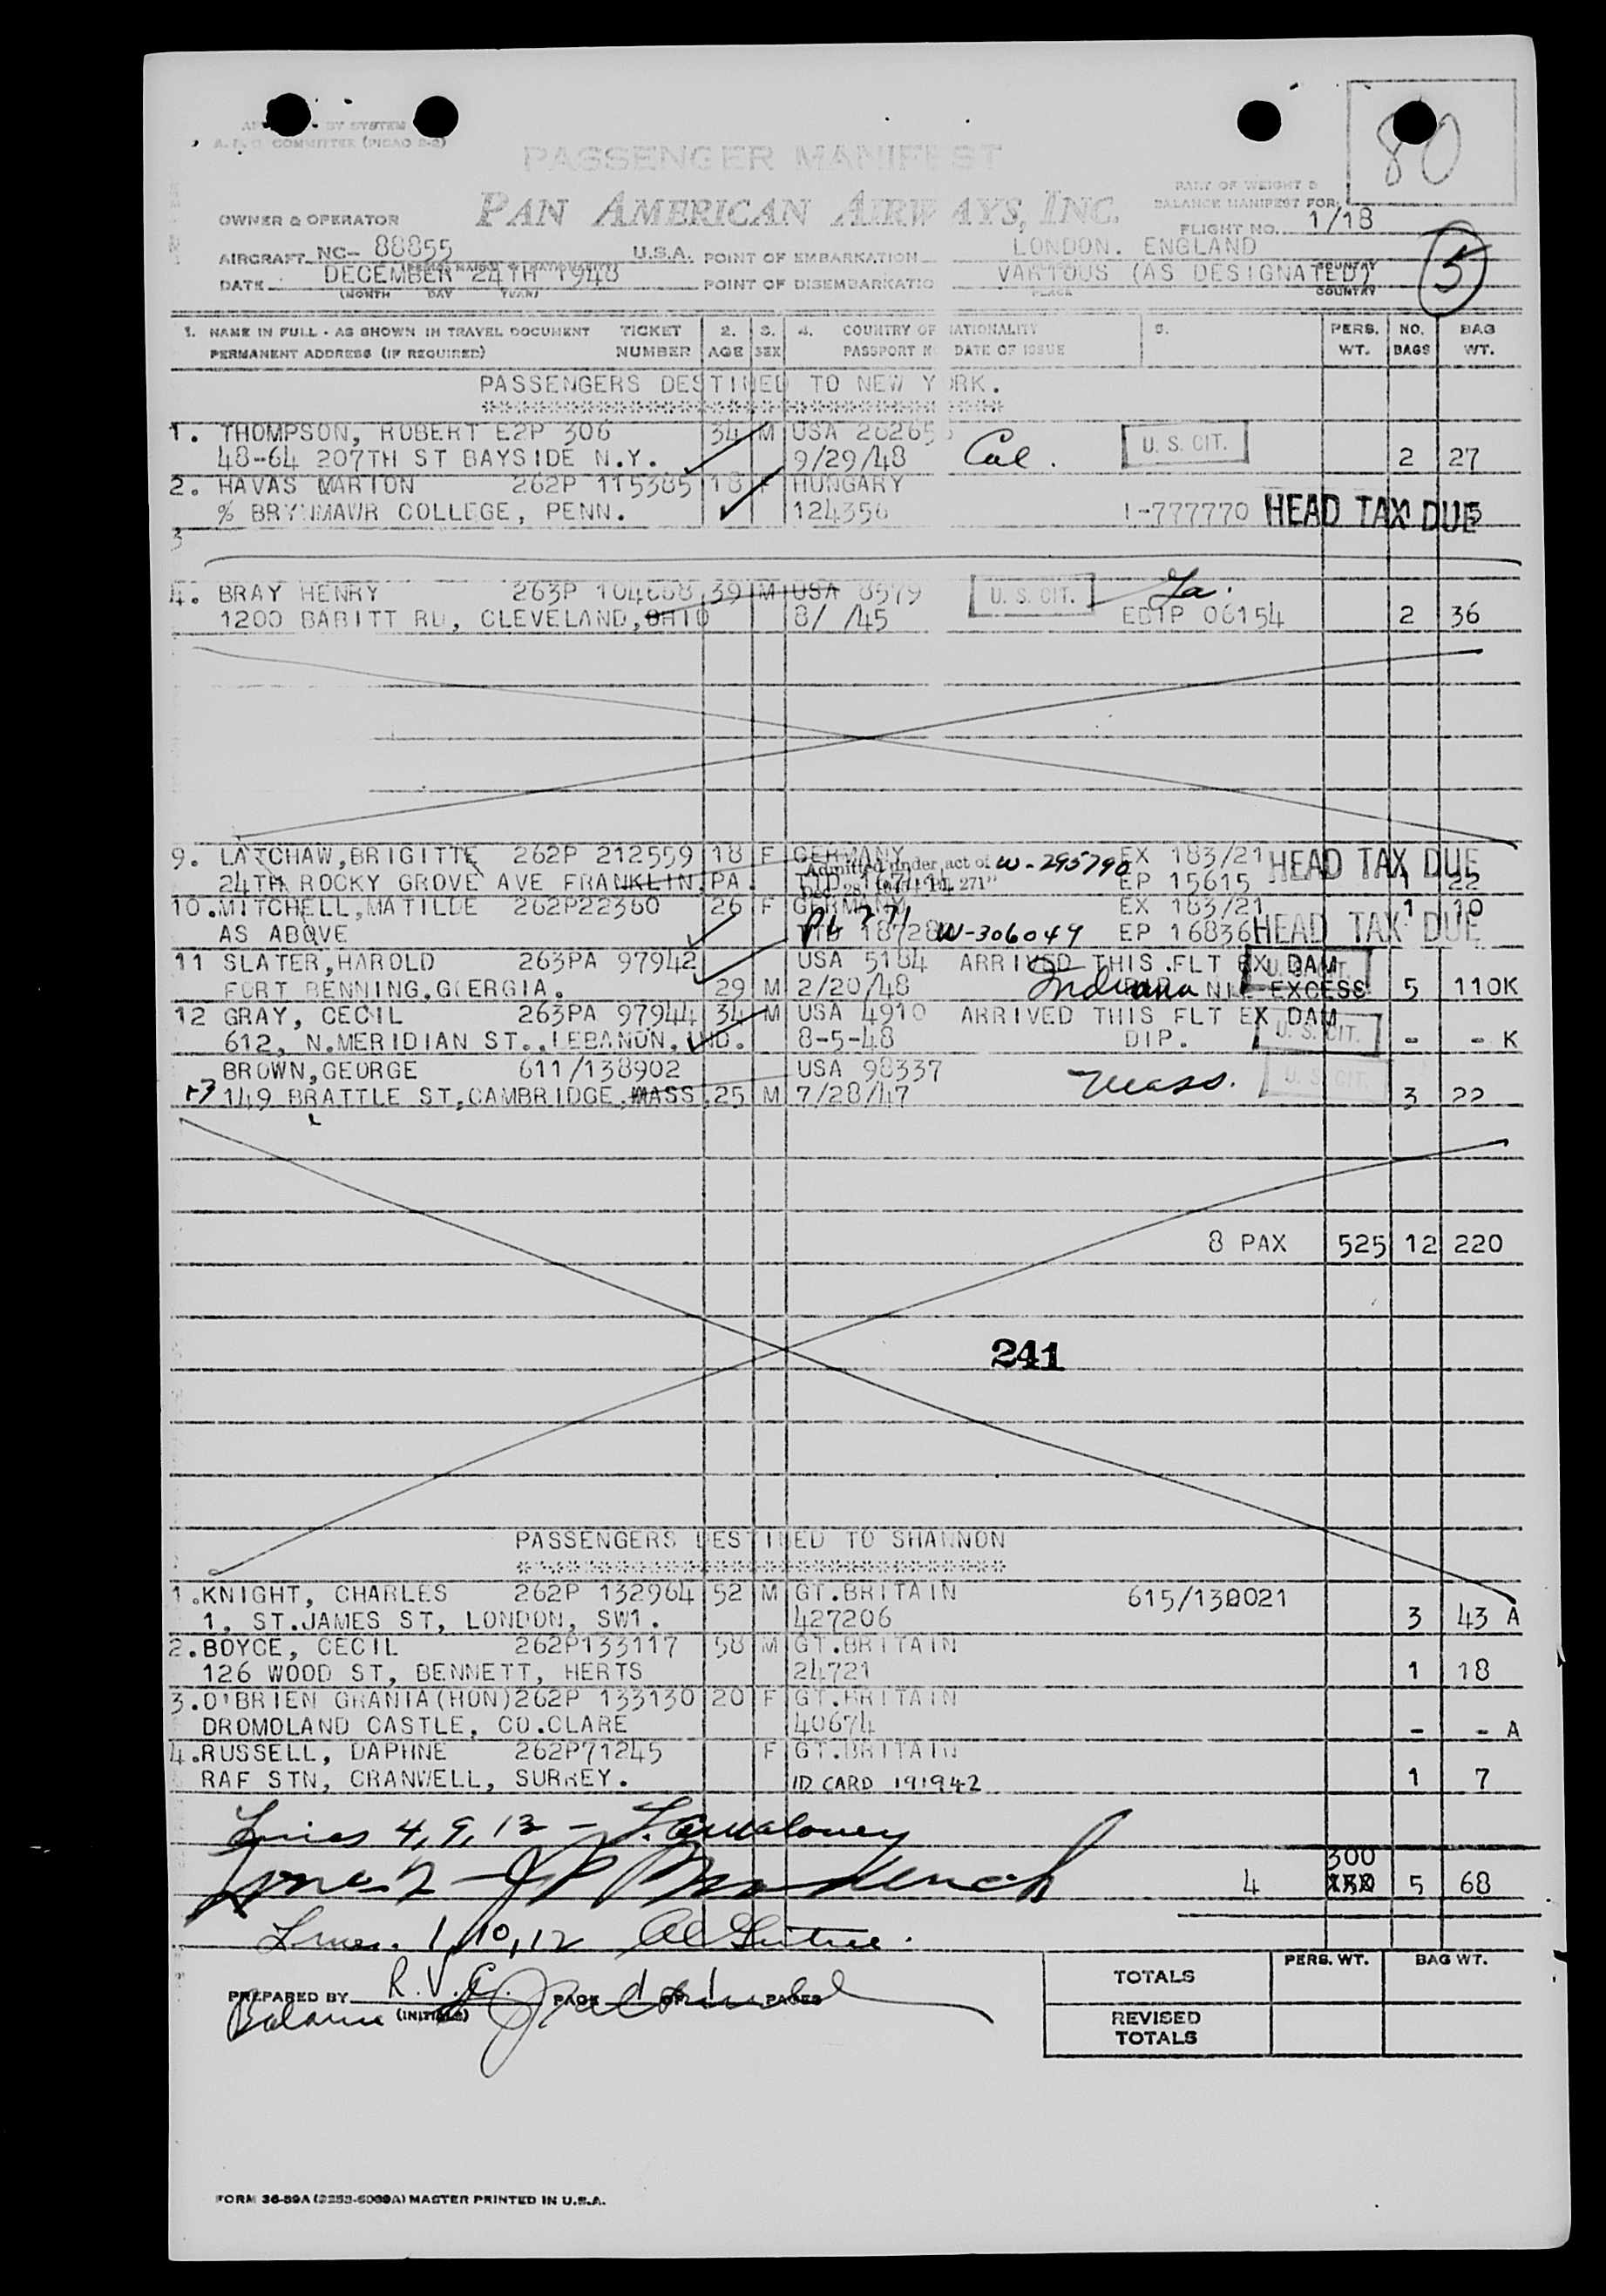 BY SYSTEM
COMMITTEE (PICAO 2-2)
PASSENGER MANIFEST
80
PAN AMERICAN AIRWAYS, INC.
PART OF WEIGHT &
BALANCE MANIFEST FOR
OWNER & OPERATOR
FLIGHT NO. 1/18
AIRCRAFT NC- 88855 U.S.A. POINT OF EMBARKATION LONDON. ENGLAND
DATE DECEMBER 24TH 1948 POINT OF DISEMBARKATIO VARIOUS (AS DESIGNATED) 5
(MONTH DAY YEAR) PLACE COUNTRY
1. NAME IN FULL - AS SHOWN IN TRAVEL DOCUMENT TICKET 2. 3. 4. COUNTRY OF NATIONALITY 5. PERS. NO. BAG
PERMANENT ADDRESS (IF REQUIRED) NUMBER AGE SEX PASSPORT NO DATE OF ISSUE WT. BAGS WT.
PASSENGERS DESTINED TO NEW YORK.
1. THOMPSON, ROBERT E2P 306 34 M USA 26265
48-64 207TH ST BAYSIDE N.Y. 9/29/48 Cal. U. S. CIT. 2 27
2. HAVAS MARION 262P 115385 18 F HUNGARY
% BRYNMAWR COLLEGE, PENN. 124356 I-777770 HEAD TAX DUE 15
3
4. BRAY HENRY 263P 104668 39 M USA 8579 U. S. CIT.
1200 BABITT RD, CLEVELAND, OHIO 8/ /45 EDIP 06154 2 36
9. LATCHAW,BRIGITTE 262P 212559 18 F GERMANY EX 183/21 HEAD TAX DUE
Admitted under act of W-295790
24TH ROCKY GROVE AVE FRANKLIN, PA. EP 15615 1 22
10. MITCHELL,MATILDE 262P22360 26 F GERMANY EX 183/21 1 10
AS ABOVE PL 271 18728 W-306049 EP 16836 HEAD TAX DUE
11 SLATER,HAROLD 263PA 97942 USA 5184 ARRIVED THIS FLT EX DAM U. S. CIT.
FORT BENNING,GOERGIA. 29 M 2/20/48 Indiana NIL EXCESS 5 110K
12 GRAY, CECIL 263PA 97944 34 M USA 4910 ARRIVED THIS FLT EX DAM
612, N.MERIDIAN ST., LEBANON, IND. 8-5-48 DIP. U. S. CIT. - - K
BROWN,GEORGE 611/138902 USA 98337
13 149 BRATTLE ST,CAMBRIDGE,MASS 25 M 7/28/47 Mass. U. S. CIT. 3 22
8 PAX 525 12 220
241
PASSENGERS DESTINED TO SHANNON
1.KNIGHT, CHARLES 262P 132964 52 M GT.BRITAIN 615/130021
1, ST.JAMES ST, LONDON, SW1. 427206 3 43 A
2.BOYCE, CECIL 262P133117 58 M GT.BRITAIN
126 WOOD ST, BENNETT, HERTS 24721 1 18
3.O'BRIEN GRANIA(HON)262P 133130 20 F GT.BRITAIN
DROMOLAND CASTLE, CO.CLARE 40674 - - A
4.RUSSELL, DAPHNE 262P71245 F GT.BRITAIN
RAF STN, CRANWELL, SURREY. ID CARD 191942 1 7
Lines 4, 9, 13 -
300
4 5 68
Lines. 1, 10, 12
PERS. WT. BAG WT.
TOTALS
PREPARED BY R.V.G. PAGE 1 OF 1 PAGES
Balance (INITIALS)
REVISED
TOTALS
FORM 36-89A (2253-6089A) MASTER PRINTED IN U.S.A.